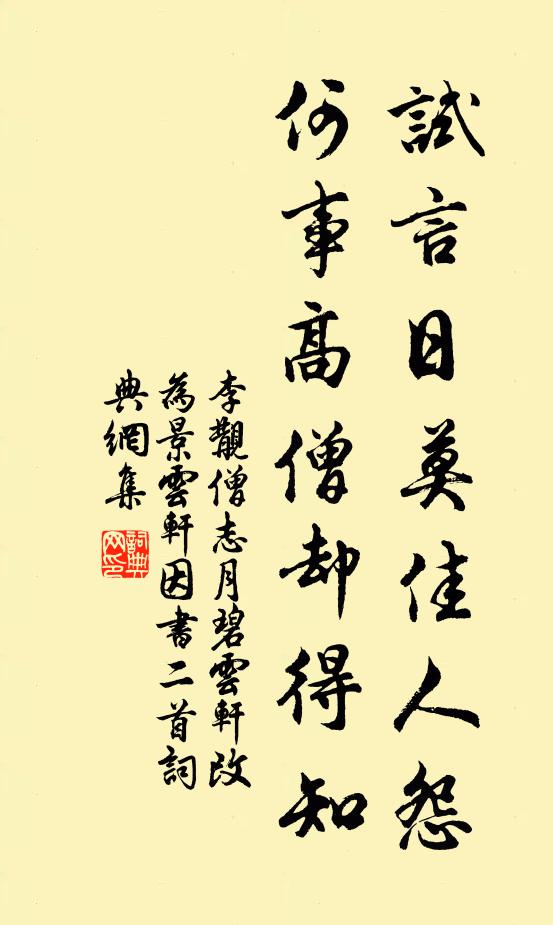 試言日莫佳人怨
何事高僧却得知
李覯僧志月碧雲軒改
為景雲軒因書二首詞
典網集
詞典
网印